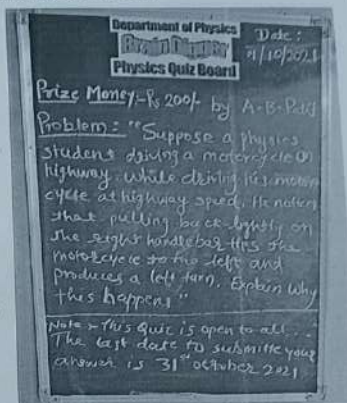 Department of Physics
Physics Quiz Board
Date :
/10/2021
Prize Money:- Rs 200/- by A. B.
Problem:- "Suppose a physics
student driving a motorcycle on
highway. While driving his motor
cycle at highway speed. He notices
that pulling back lightly on
the right handlebar tips the
motorcycle to the left and
produces a left turn. Explain why
this happens"
Note :- This Quiz is open to all...
The last date to submitte your
answer is 31st october 2021